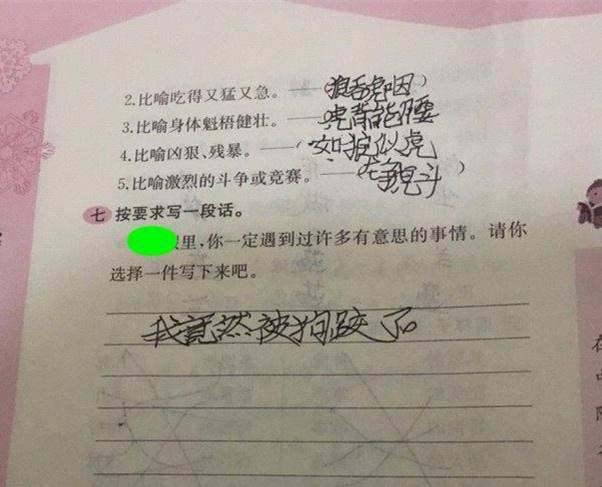 2.比喻吃得又猛又急。——(狼吞虎咽)
3.比喻身体魁梧健壮。——虎背熊腰
4.比喻凶狠、残暴。——(如狼似虎
5.比喻激烈的斗争或竞赛。——(龙争虎斗)
七 按要求写一段话。
假里,你一定遇到过许多有意思的事情。请你
选择一件写下来吧。
我竟然被狗跤了
在
中